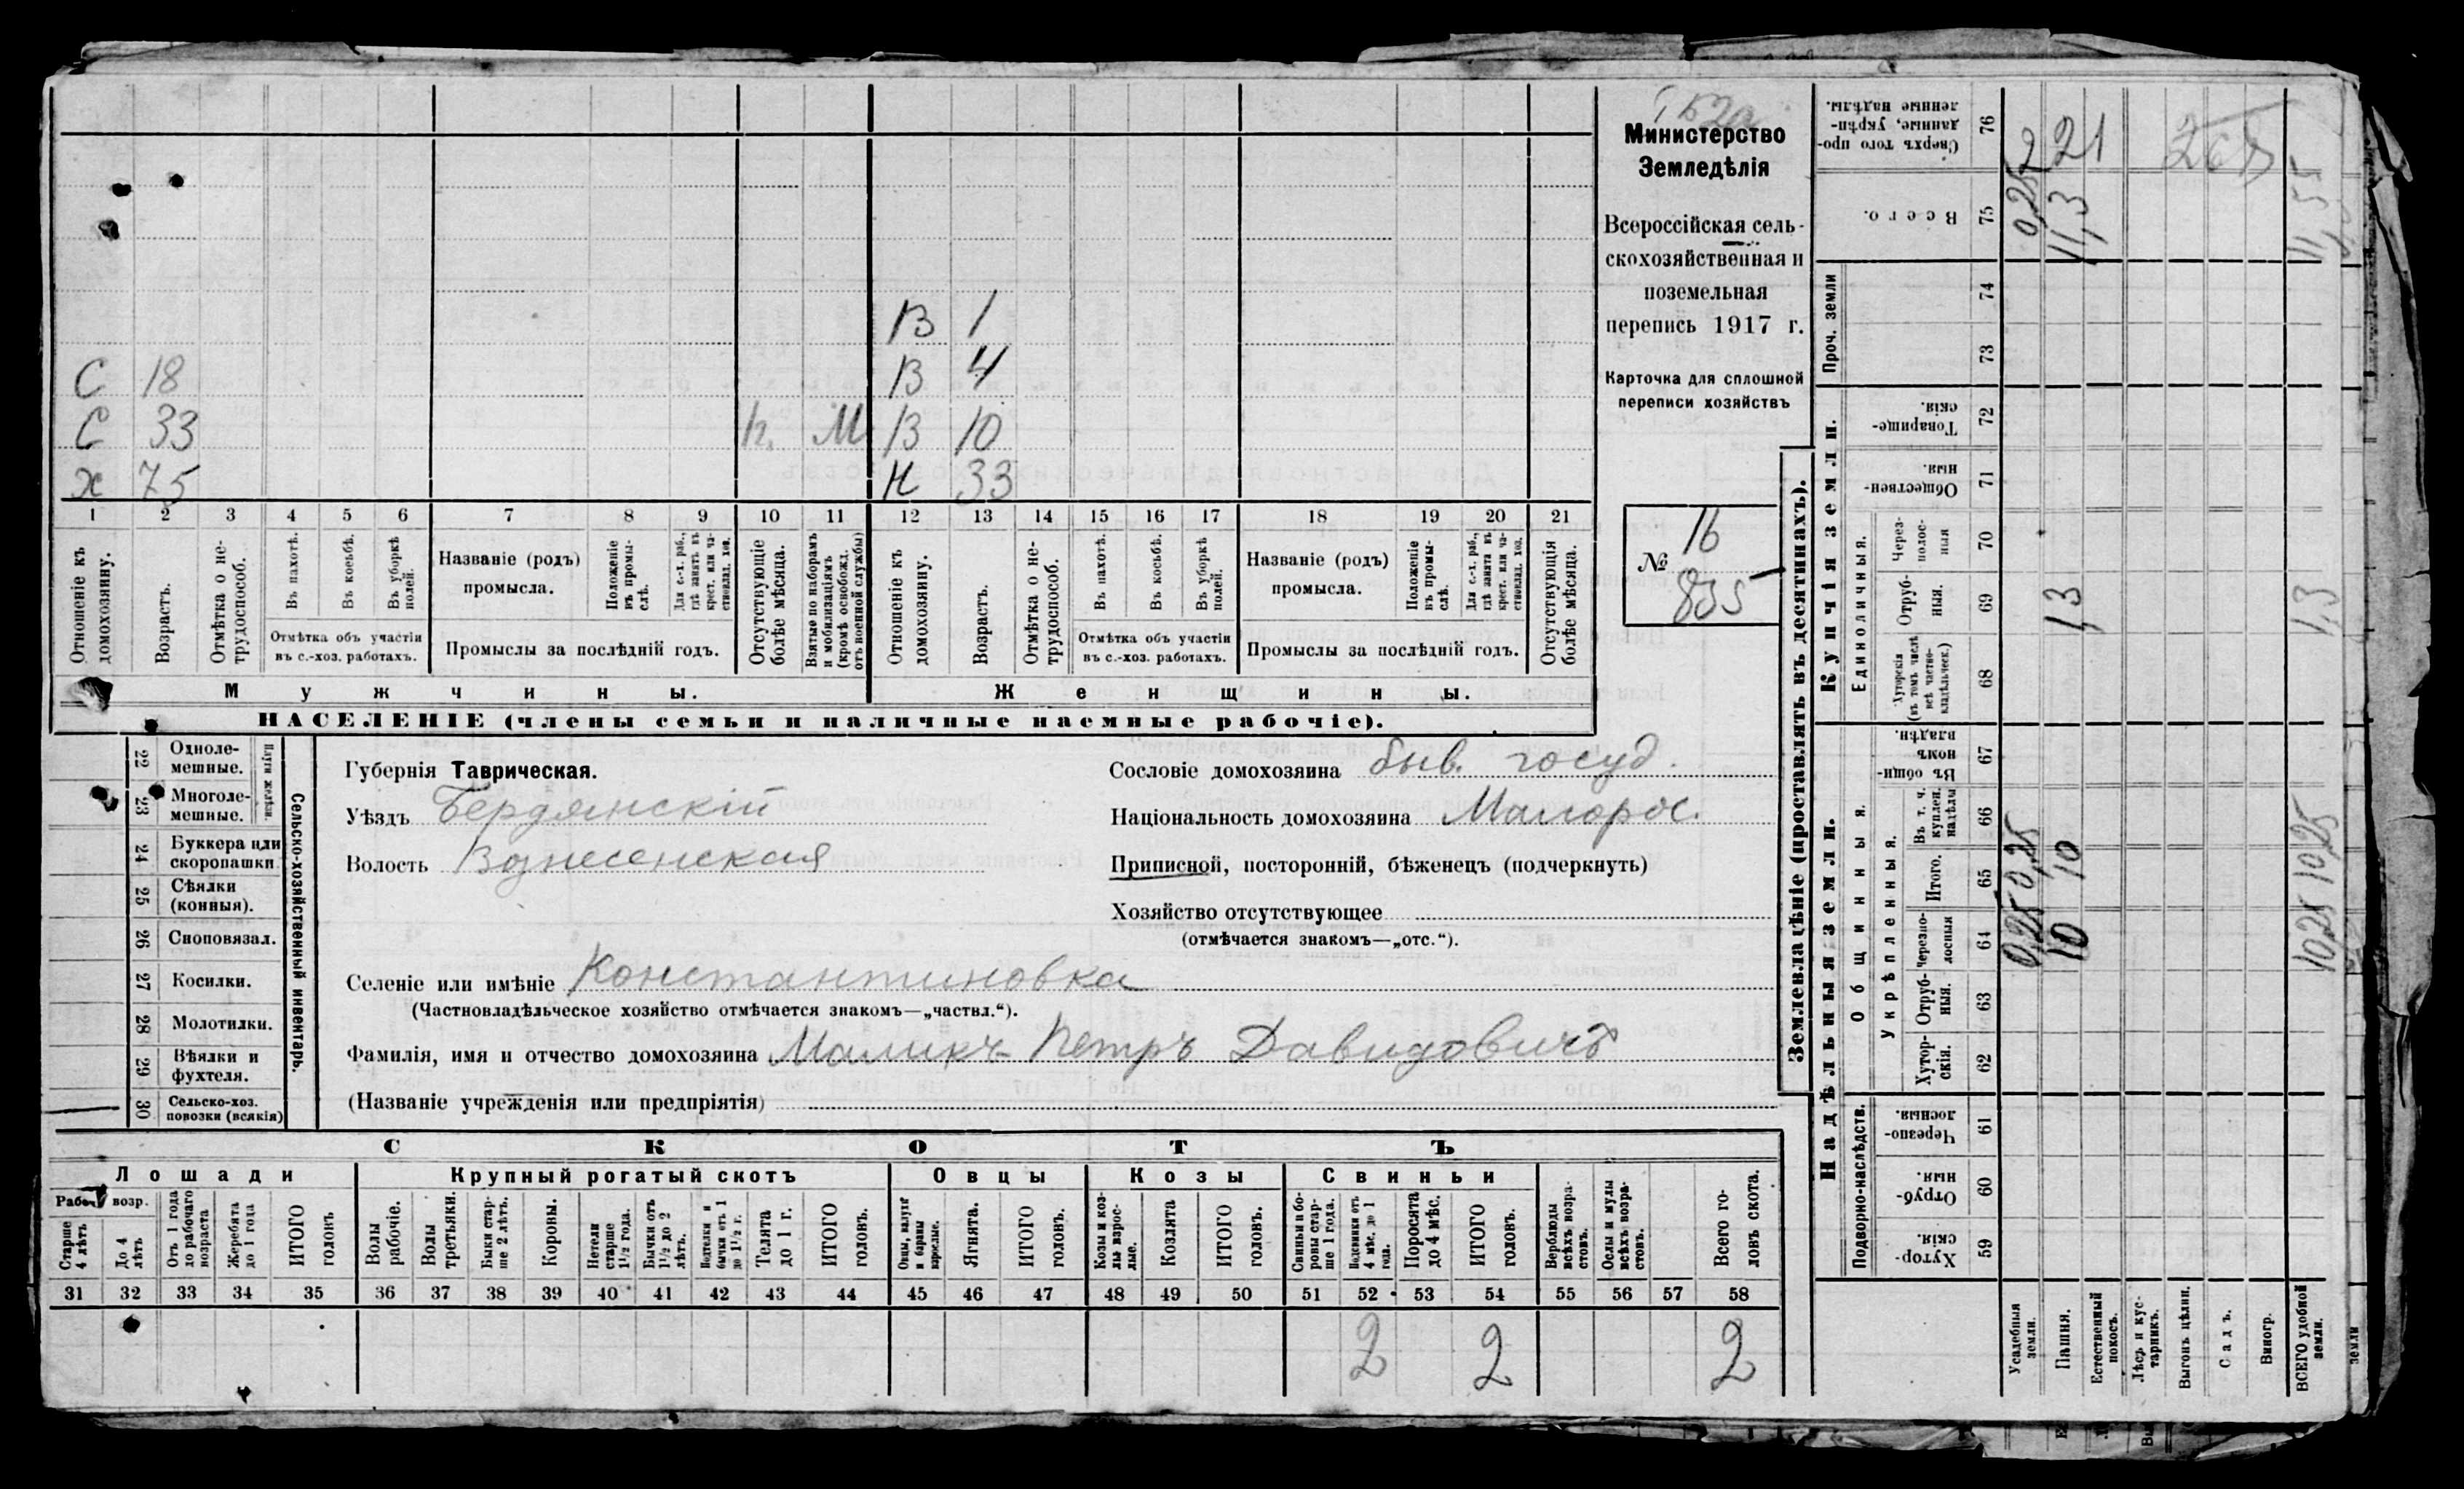 Министерство
Земледѣлія
Всероссійская сель-
скохозяйственная и
поземельная
перепись 1917 г.
Карточка для сплошной
переписи хозяйствъ
№ 16
835
В 1
С 18 В 4
С 33 М В 10
х 75 Н 33
1 2 3 4 5 6 7 8 9 10 11 12 13 14 15 16 17 18 19 20 21
Отношеніе къ домохозяину.
Возрастъ.
Отмѣтка о не-трудоспособ.
Въ пахотѣ.
Въ косьбѣ.
Въ уборкѣ полей.
Отмѣтка объ участіи
въ с.-хоз. работахъ.
Названіе (родъ)
промысла.
Положеніе въ промы-слѣ.
Для с.-х. раб., гдѣ занятъ въ крест. или ча-стновлад. хоз.
Промыслы за послѣдній годъ.
Отсутствующіе болѣе мѣсяца.
Взятые по наборамъ и мобилизаціямъ (кромѣ освобожд. отъ военной службы)
Отношеніе къ домохозяину.
Возрастъ.
Отмѣтка о не-трудоспособ.
Въ пахотѣ.
Въ косьбѣ.
Въ уборкѣ полей.
Отмѣтка объ участіи
въ с.-хоз. работахъ.
Названіе (родъ)
промысла.
Положеніе въ промы-слѣ.
Для с.-х. раб., гдѣ занята въ крест. или ча-стновлад. хоз.
Промыслы за послѣдній годъ.
Отсутствующія болѣе мѣсяца.
Мужчины. Женщины.
НАСЕЛЕНІЕ (члены семьи и наличные наемные рабочіе).
22 Одноле-
мешные.
23 Многоле-
мешные.
Плуги желѣзн.
24 Буккера или
скоропашки
25 Сѣялки
(конныя).
26 Сноповязал.
27 Косилки.
28 Молотилки.
29 Вѣялки и
фухтеля.
30 Сельско-хоз.
повозки (всякія)
Сельско-хозяйственный инвентарь.
Губернія Таврическая.
Уѣздъ Бердянскій
Волость Вознесенская
Сословіе домохозяина быв. госуд.
Національность домохозяина Малорос.
Приписной, посторонній, бѣженецъ (подчеркнуть)
Хозяйство отсутствующее
(отмѣчается знакомъ—„отс.“).
Селеніе или имѣніе Константиновка
(Частновладѣльческое хозяйство отмѣчается знакомъ—„частвл.“).
Фамилія, имя и отчество домохозяина Маликъ Петръ Давидовичъ
(Названіе учрежденія или предпріятія)
СКОТЪ
Лошади Крупный рогатый скотъ Овцы Козы Свиньи
Рабоч. возр.
Старше 4 лѣтъ
До 4 лѣтъ
Отъ 1 года до рабочаго возраста
Жеребята до 1 года
ИТОГО головъ
Волы рабочіе.
Волы третьяки.
Быки стар-ше 2 лѣтъ.
Коровы.
Нетели старше 1½ года.
Бычки отъ 1½ до 2 лѣтъ.
Подтелки и бычки отъ 1 до 1½ г.
Телята до 1 г.
ИТОГО головъ.
Овцы, валухи и бараны взрослые.
Ягнята.
ИТОГО головъ.
Козы и коз-лы взрос-лые.
Козлята
ИТОГО головъ.
Свиньи и бо-ровы стар-ше 1 года.
Подсвинки отъ 4 мѣс. до 1 года.
Поросята до 4 мѣс.
ИТОГО головъ.
Верблюды всѣхъ возра-стовъ.
Ослы и мулы всѣхъ возра-стовъ.
Всего го-ловъ скота.
31 32 33 34 35 36 37 38 39 40 41 42 43 44 45 46 47 48 49 50 51 52 53 54 55 56 57 58
2 2 2
Землевладѣніе (проставлять въ десятинахъ).
Надѣльныя земли. Купчія земли. Проч. земли
Подворно-наслѣдств.
Общинныя.
Укрѣпленныя.
Единоличныя.
Хутор-скія. 59
Отруб-ныя. 60
Черезпо-лосныя. 61
Хутор-скія. 62
Отруб-ныя. 63
Черезпо-лосныя 64
Итого. 65
Въ т. ч. куплен. надѣлы 66
Въ общи-номъ владѣн. 67
Хуторскія (въ томъ числѣ всѣ частно-владѣльческ.) 68
Отруб-ныя. 69
Через-полос-ныя 70
Обществен-ныя. 71
Товарище-скія. 72
73
74
Всего. 75
Сверхъ того про-данные, укрѣп-ленные надѣлы. 76
Усадебныя земли. 0,25 0,25 0,25 2
Пашня. 10 10 1,3 11,3 21
Естественный покосъ.
Лѣсъ и кус-тарникъ.
Выгонъ цѣлин.
Садъ.
Виногр.
ВСЕГО удобной земли. 10,25 10,25 1,3 11,55
земли